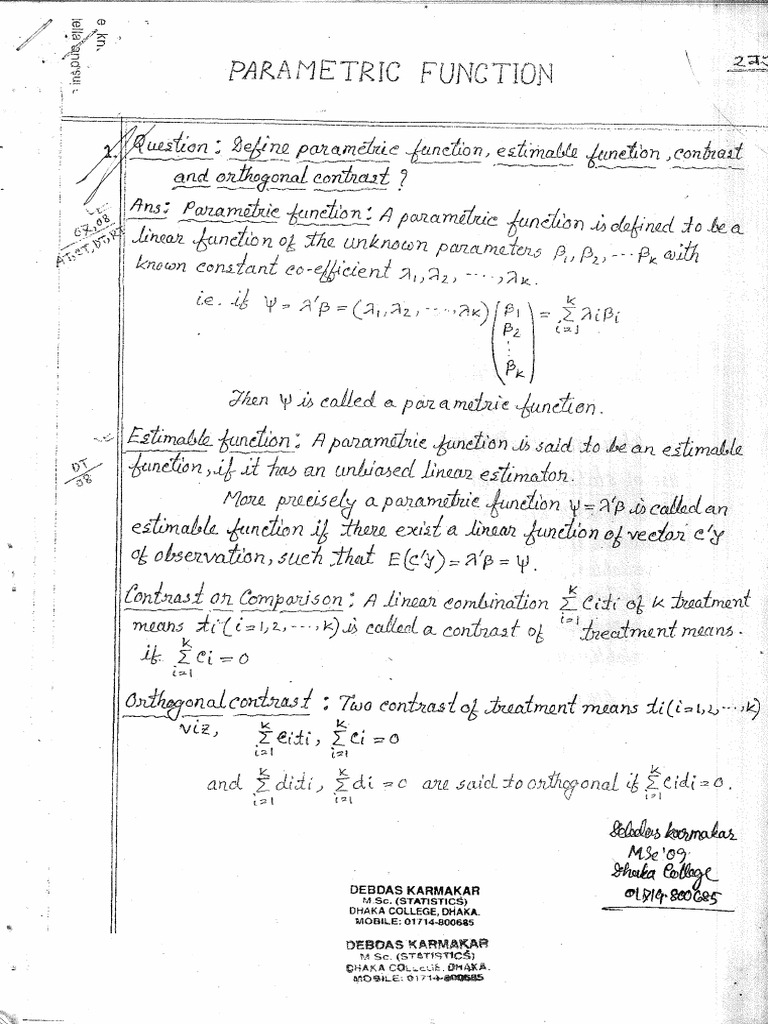 e kn.
PARAMETRIC FUNCTION
1. Question: Define parametric function, estimable function, contrast
and orthogonal contrast?
Ans: Parametric function: A parametric function is defined to be a
07,08
AT,CT,DT,RT
linear function of the unknown parameters β1, β2, ... βk with
known constant co-efficient λ1, λ2, ...., λk.
i.e. if Ψ = λ'β = (λ1, λ2, ...., λk) (β1 β2 ⋮ βk) = Σ_{i=1}^{k} λiβi
Then Ψ is called a parametric function.
Estimable function: A parametric function is said to be an estimable
DT/08
function, if it has an unbiased linear estimator.
More precisely a parametric function Ψ = λ'β is called an
estimable function if there exist a linear function of vector c'y
of observation, such that E(c'y) = λ'β = Ψ.
Contrast or Comparison: A linear combination Σ_{i=1}^{k} citi of k treatment
means ti (i=1,2, ...,k) is called a contrast of treatment means.
if Σ_{i=1}^{k} ci = 0
Orthogonal contrast: Two contrast of treatment means ti(i=1,2,...,k)
viz, Σ_{i=1}^{k} citi, Σ_{i=1}^{k} ci = 0
and Σ_{i=1}^{k} diti, Σ_{i=1}^{k} di = 0 are said to orthogonal if Σ_{i=1}^{k} cidi = 0.
Debdas Karmakar
MSc'09
Dhaka College
01714-800685
DEBDAS KARMAKAR
M.Sc. (STATISTICS)
DHAKA COLLEGE, DHAKA.
MOBILE: 01714-800685
DEBDAS KARMAKAR
M Sc. (STATISTICS)
DHAKA COLLEGE, DHAKA.
MOBILE: 01714-800685